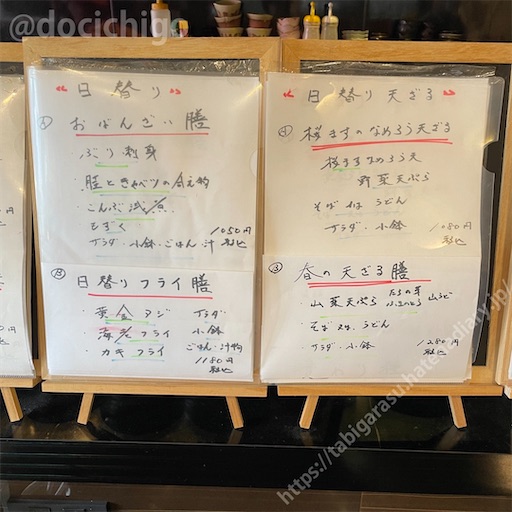 @docichigo
"日替り"
A おばんざい膳
ぶり刺身
・こんぶ
もずく
サラダ・小鉢・ごはん・汁
1050円
税込
B 日替りフライ膳
アジ
サラダ
・海老フライ
小鉢
・カキフライ
ごはん・汁物
1180円
税込
"日替り天ざる"
桜ますのなめろう天ざる
桜ますなめろう天
野菜天ぷら
そば or うどん
サラダ・小鉢
1080円
税込
春の天ざる膳
・山菜天ぷら たらの芽 ふきのとう 山うど
・そば or うどん
サラダ・小鉢
1280円
税込
https://tabigarasu.hatenadiary.jp/